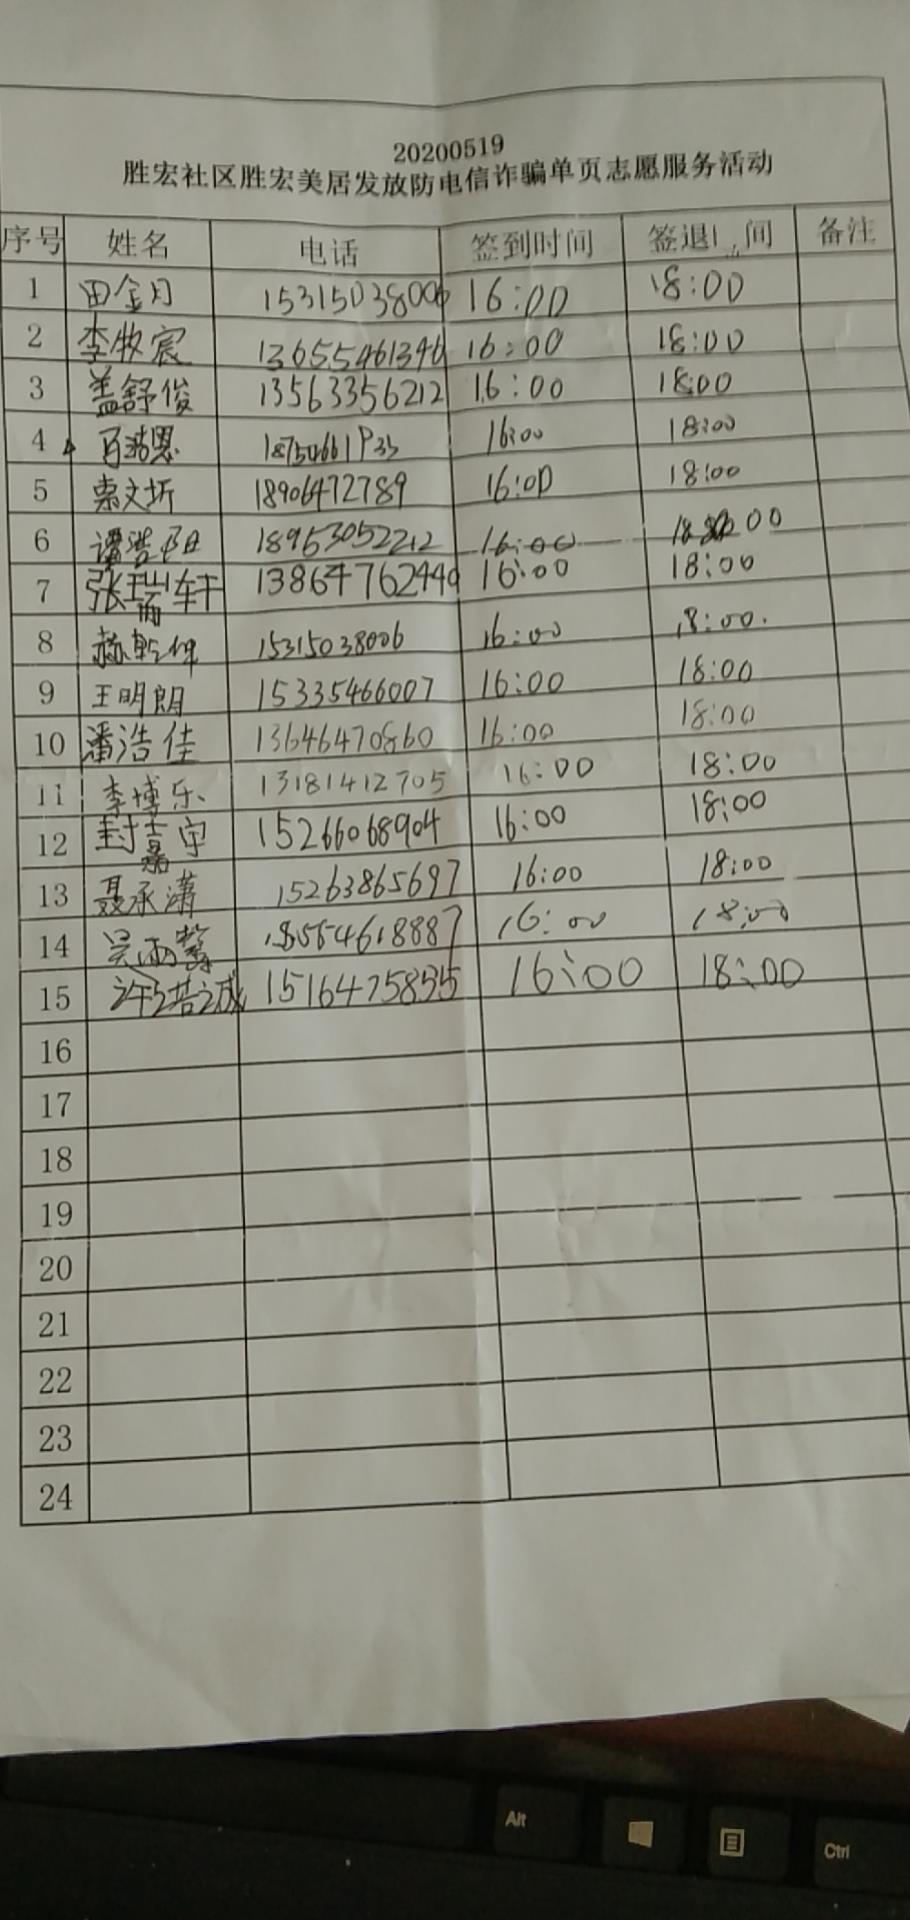 20200519
胜宏社区胜宏美居发放防电信诈骗单页志愿服务活动
序号 姓名 电话 签到时间 签退 间 备注
1 田金月 15315038006 16:00 18:00
2 李牧宸 13655461346 16:00 18:00
3 盖舒俊 13563356212 16:00 18:00
4 16:00 18:00
5 索文圻 18906472789 16:00 18:00
6 谭浩阳 18953052212 16:00 18:00
7 张瑞轩 13864762440 16:00 18:00
8 郝乾坤 15315038006 16:00 18:00.
9 王明朗 15335466007 16:00 18:00
10 潘浩佳 13646470860 16:00 18:00
11 李博乐 13181412705 16:00 18:00
12 封嘉宇 15266068904 16:00 18:00
13 聂承潇 15263865697 16:00 18:00
14 吴雨 18554618887 16:00 18:00
15 许诺诚 15164725835 16:00 18:00
16
17
18
19
20
21
22
23
24
Alt
Ctrl